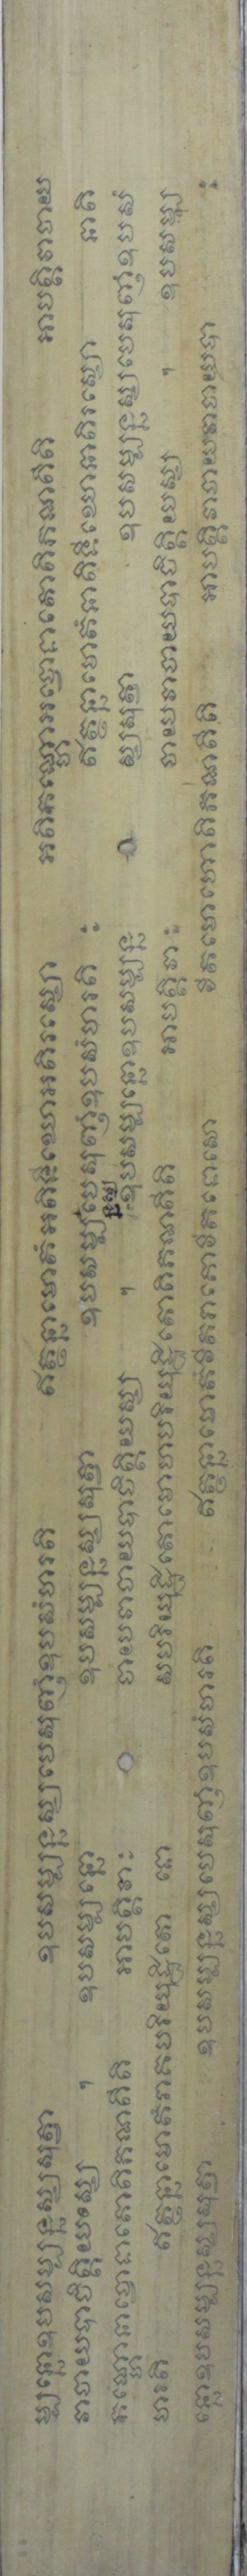 ម្បន្នោឧបសម្បន្នស្សសុត្វា ឧបសម្បន្នស្សបេសុញ្ញំឧបសំហរតិ ឥត្ថន្នាមោតំអតិទីឃោអតិរស្សោ អតិកណ្ហោអច្ចោទាតោតិភណតីតិ អាបត្តិវាចាយ
វាចាយបាចិត្តិយស្ស ។ ឧបសម្បន្នោ ឧបសម្បន្នស្សសុត្វា ឧបសម្បន្នស្សបេសុញ្ញំឧបសំហរតិ ៖ ឥត្ថន្នាមោតំនាតិទីឃោនាតិរស្សោ នាតិ
កណ្ហោនាច្ចោទាតោតិភណតីតិ អាបត្តិវាះ ចាយវាចាយបាចិត្តិយស្ស ។ ឧបសម្បន្នោឧបសម្បន្ន ស្សសុត្វា ឧបសម្បន្នស្សបេសុញ្ញំឧបសំ
ហរតិ ឥត្ថន្នាមោតំរាគបរិយុដ្ឋិតោ ទោ សបរិយុដ្ឋិតោមោហបរិយុដ្ឋិតោតិភណតីតិ អាបត្តិវាះ ចាយវាចាយបាចិត្តិយស្ស ។ ឧបសម្ប
ន្នោឧបសម្បន្នស្សសុត្វា ឧបសម្បន្នស្សបេសុញ្ញំឧបសំហរតិ ឥត្ថន្នាមោតំវីតរាគោវីតទោសោ វីតមោហោតិភណតីតិ អាបត្តិវាចាយវាចាយបា ៖